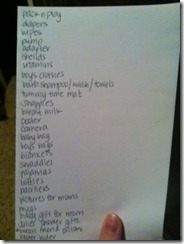 pack n play
diapers
wipes
pump
adapter
shields
vitamins
boy's clothes
bath shampoo/wash/towels
tummy time mat
snapples
breast milk
cooler
camera
baby bag
boy's
blankets
swaddles
pajamas
bottles
pacifiers
pictures for moms
mugs
gift for mom
shower gifts
friend